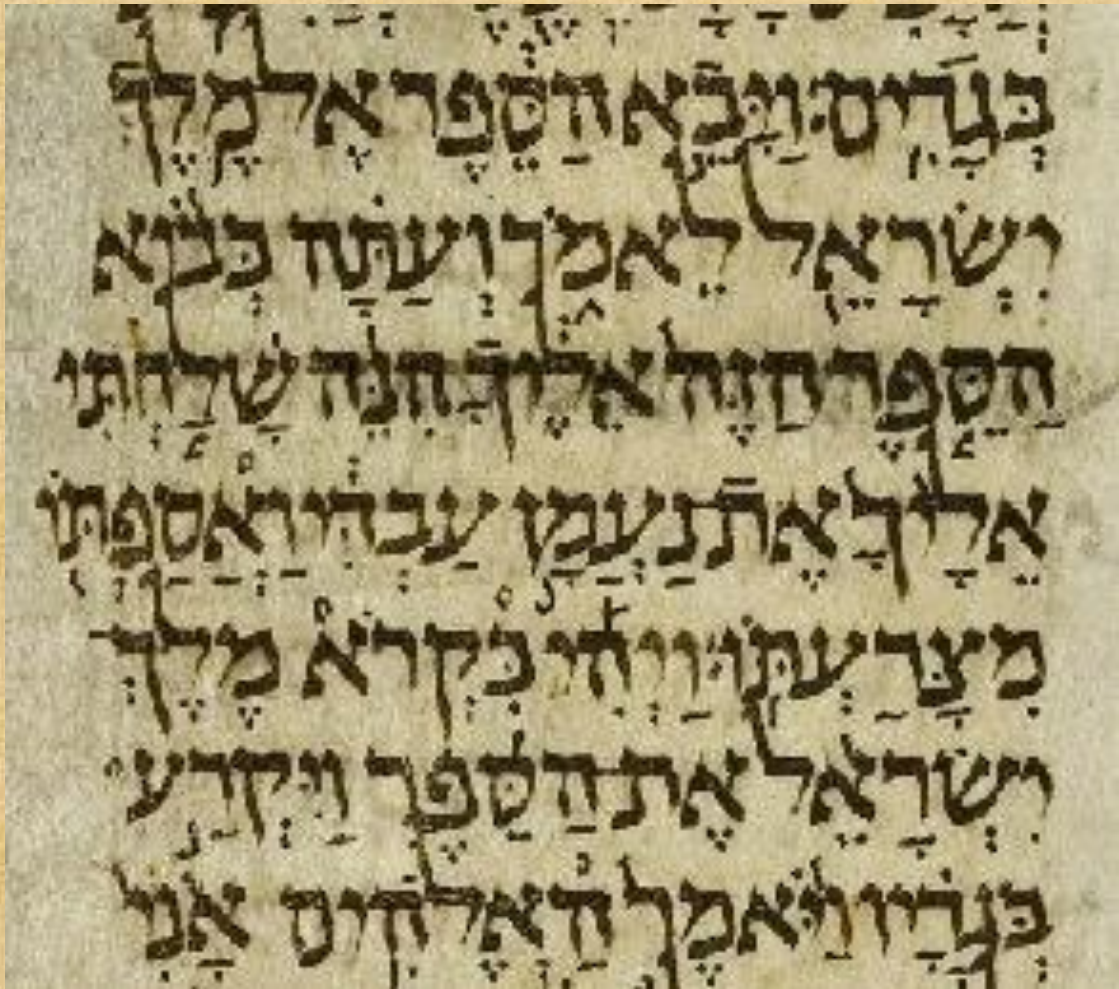 בְּגָדִֽים׃ וַיָּבֵא הַסֵּפֶר אֶל־מֶלֶךְ
יִשְׂרָאֵל לֵאמֹר וְעַתָּה כְּבוֹא
הַסֵּפֶר הַזֶּה אֵלֶיךָ הִנֵּה שָׁלַחְתִּי
אֵלֶיךָ אֶת־נַעֲמָן עַבְדִּי וַאֲסַפְתּוֹ
מִצָּרַעְתּוֹ׃ וַיְהִי כִּקְרֹא מֶלֶךְ־
יִשְׂרָאֵל אֶת־הַסֵּפֶר וַיִּקְרַע
בְּגָדָיו וַיֹּאמֶר הַאֱלֹהִים אָנִי